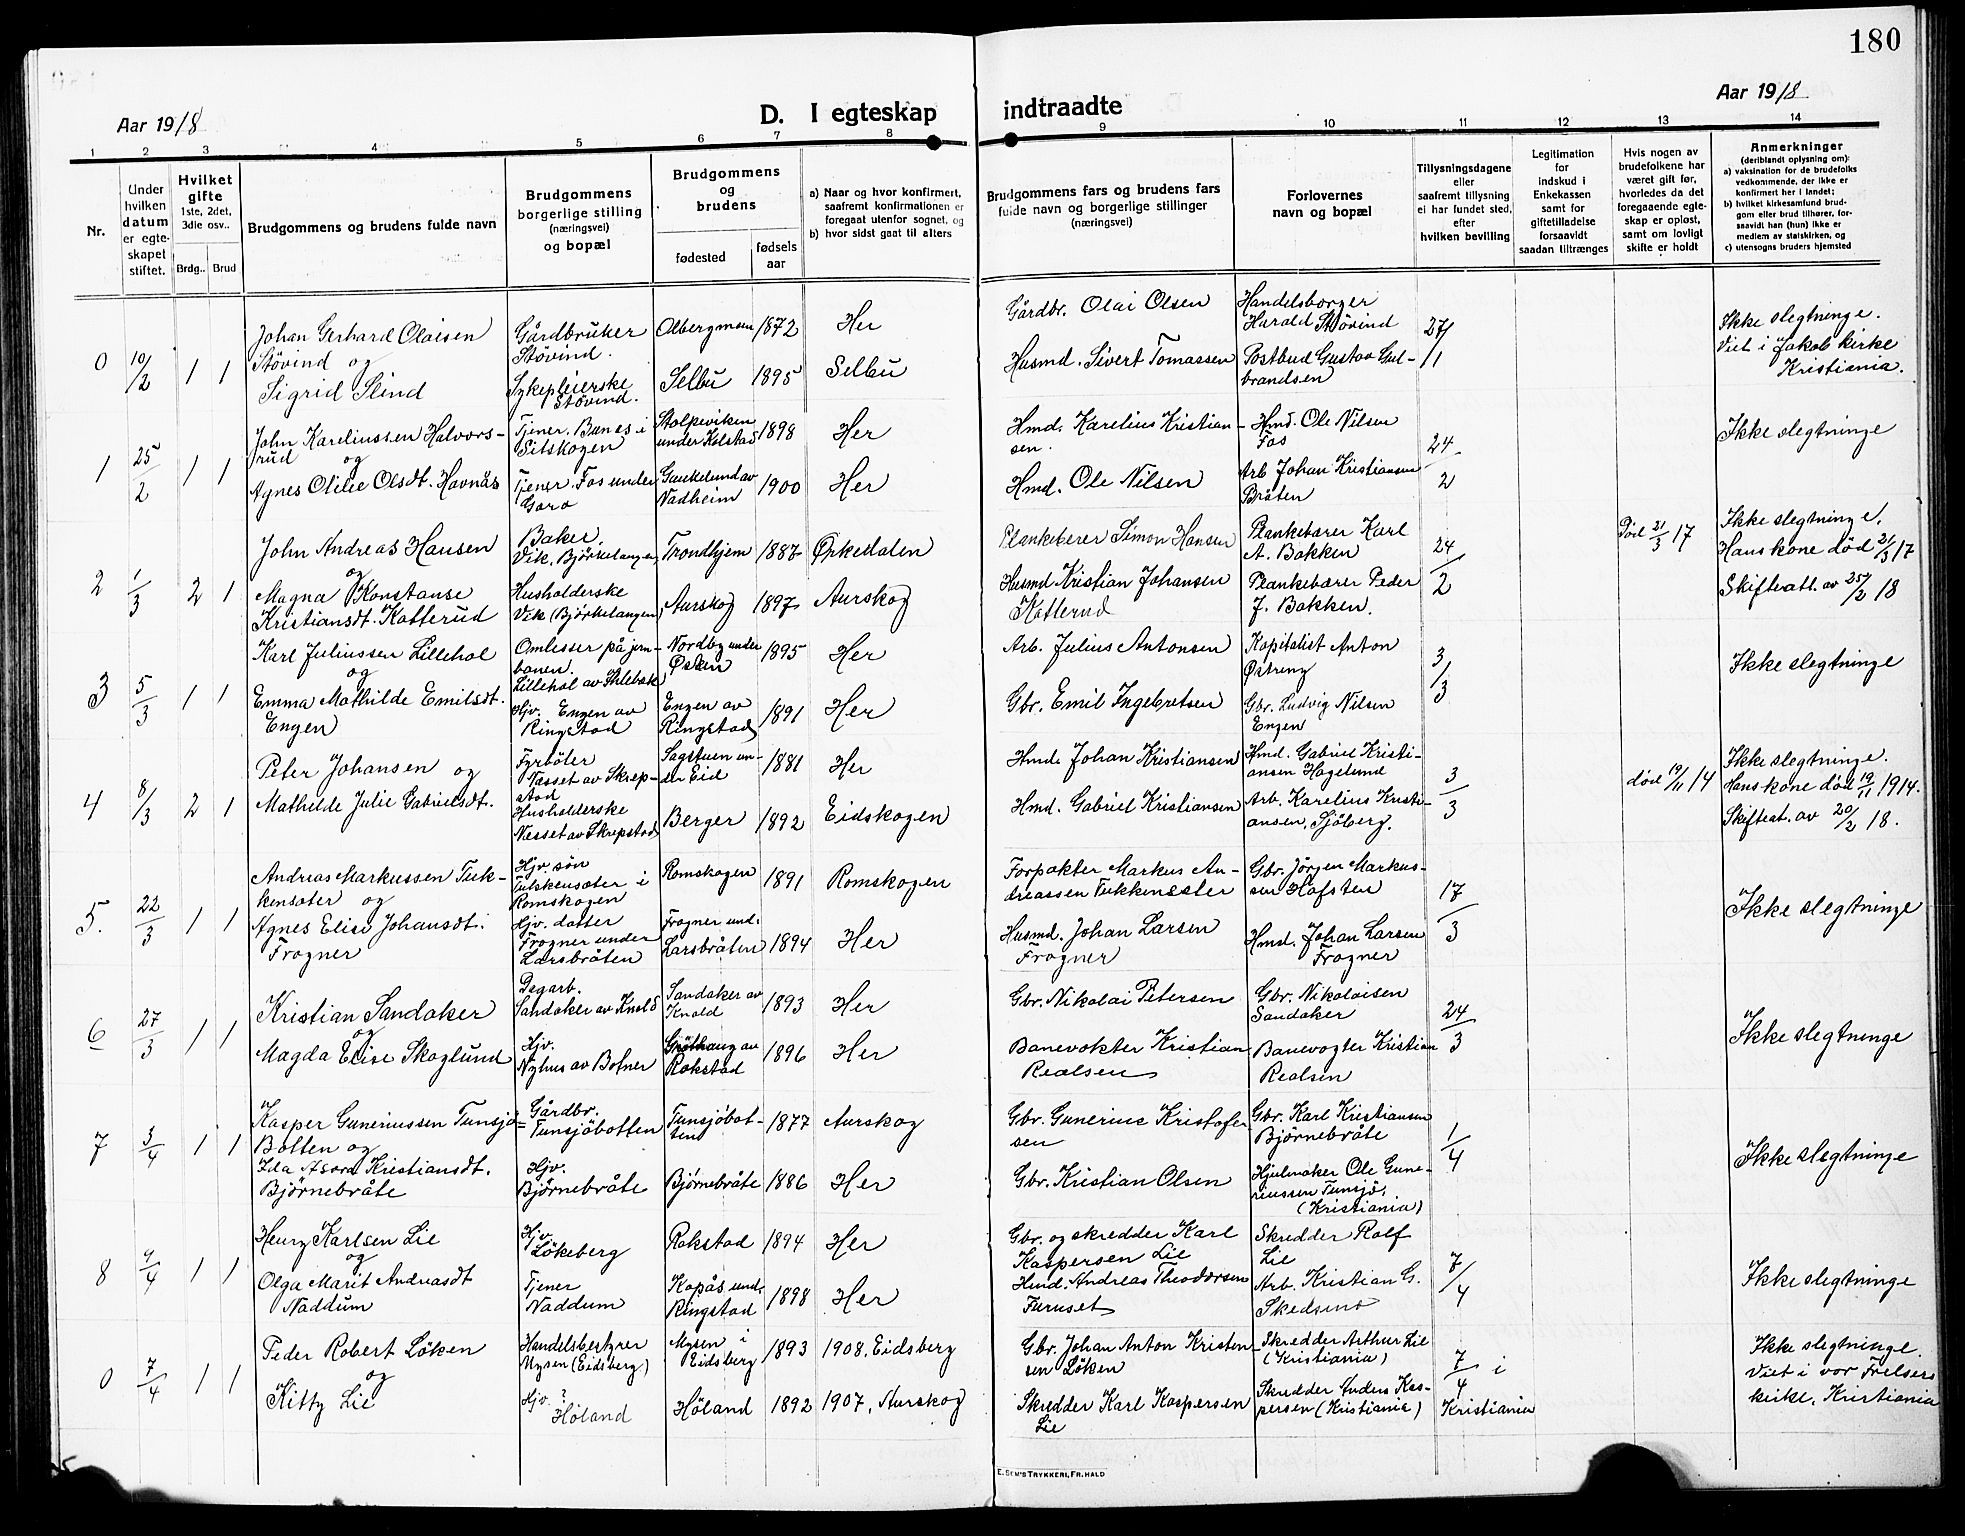 180
Aar 1918
D. I egteskap indtraadte
Aar 1918
1 2 3 4 5 6 7 8 9 10 11 12 13 14
Nr.
Under hvilken datum er egteskapet stiftet.
Hvilket gifte 1ste, 2det, 3die osv..
Brdg.. Brud
Brudgommens og brudens fulde navn
Brudgommens borgerlige stilling (næringsvei) og bopæl
Brudgommens og brudens
fødested
fødsels aar
a) Naar og hvor konfirmert, saafremt konfirmationen er foregaat utenfor sognet, og
b) hvor sidst gaat til alters
Brudgommens fars og brudens fars fulde navn og borgerlige stillinger (næringsvei)
Forlovernes navn og bopæl
Tillysningsdagene eller saafremt tillysning ei har fundet sted, efter hvilken bevilling
Legitimation for indskud i Enkekassen samt for giftetilladelse forsaavidt saadan tiltrænges
Hvis nogen av brudefolkene har været gift før, hvorledes da det foregaaende egteskap er opløst, samt om lovligt skifte er holdt
Anmerkninger (deriblandt oplysning om):
a) vaksination for de brudefolks vedkommende, der ikke er konfirmert her i landet;
b) hvilket kirkesamfund brudgom eller brud tilhører, forsaavidt han (hun) ikke er medlem av statskirken, og
c) utensogns bruders hjemsted
0 10/2 1 1
Johan Gerhard Olaisen Stövind og
Gårdbruker Stövind.
Olbergmoen 1872 Her
Gårdbr. Olai Olsen
Handelsborger Harald Stövind
27/1
Ikke slegtninge.
Viet i Jakob kirke
Kristiania.
Sigrid Slind
Sykepleierske Stövind.
Selbu 1895 Selbu
Husmd. Sivert Tomassen
Postbud Gustav Gulbrandsen
1 25/2 1 1
John Kareliussen Halvorsrud og
Tjener. Banes i Sitskogen
Stolpeviken under Kolstad 1898 Her
Hmd. Karelius Kristiansen.
Hmd. Ole Nilsen Fos
24/2
Ikke slegtninge
Agnes Otilie Olsdt. Havnås
Tjener. Fos under
1900 Her
Hmd. Ole Nilsen
Arb Johan Kristiansen Bråten
2 1/3 2 1
John Andreas Hansen og
Baker, Vik, Björkelangen
Trondhjem 1887 Örkedalen
Plankebærer Simon Hansen
Plankebærer Karl A. Bakken
24/2
Död 21/3 17
Ikke slegtninge.
Hans kone död 21/3 17
Skifteatt. av 25/2 18
Magna Konstanse Kristiansdt. Katterud
Husholderske Vik (Björkelangen)
Aurskog 1897 Aurskog
Husmd Kristian Johansen Katterud
Plankebærer Peder J. Bakken.
3 5/3 1 1
Karl Juliussen Lillehol og
Omlesser på jernbanen.
Nordby under Östen 1895 Her
Arb. Julius Antonsen
Kapitalist Anton Östreng
3/3
Ikke slegtninge
Emma Mathilde Emilsdt. Engen
Hjv. Engen av Ringstad
Engen av Ringstad 1891 Her
Gbr. Emil Ingebretsen
Gbr. Ludvig Nilsen Engen
4 8/3 2 1
Peter Johansen og
Fyrböter Næsset av Skrepstad
Sagstuen under Eid 1881 Her
Hmd. Johan Kristiansen
Hmd. Gabriel Kristiansen Hagelund
3/3
död 19/11 14
Ikke slegtninge.
Hans kone död 19/11 1914.
Skifteat. av 20/2 18.
Mathilde Julie Gabrielsdt.
Husholderske Nesset av Skrepstad
Berger 1892 Eidskogen
Hmd. Gabriel Kristiansen
Arb. Karelius Kristiansen, Sjöberg.
5. 22/3 1 1
Andreas Markussen Tukkensæter og
Hjv. sön Tukkensæter i Romskogen
Romskogen 1891 Romskogen
Forpakter Markus Andreassen Tukkensæter
Gbr. Jörgen Markussen Hafsten
17/3
Ikke slegtninge
Agnes Elise Johansdt. Frogner
Hjv. datter Frogner under Larsbråten
Frogner und. Larsbråten 1894 Her
Husmd. Johan Larsen Frogner
Hmd. Johan Larsen Frogner
6 27/3 1 1
Kristian Sandaker og
Dagarb. Sandaker av Knold
Sandaker av Knold 1893 Her
Gbr. Nikolai Petersen
Gbr. Nikolaisen Sandaker
24/3
Ikke slegtninge
Magda Elise Skoglund
Hjv. Nyhus av Botner
Gröthaug av Rakstad 1896 Her
Banevokter Kristian Realsen
Banevogter Kristian Realsen
7 3/4 1 1
Kasper Gunerius­sen Tunsjö=Botten og
Gårdbr. Tunsjöbotten
Tunsjöbotten 1877 Aurskog
Gbr. Gunerius Kristofersen
Gbr. Karl Kristiansen Björnebråte
1/4
Ikke slegtninge
Ida Asora Kristiansdt. Björnebråte
Hjv. Björnebråte
Björnebråte 1886 Her
Gbr. Kristian Olsen
Hjulmaker Ole Guneriussen Tunsjö, (Kristiania)
8 9/4 1 1
Henry Karlsen Lie og
Hjv. Lökeberg
Rakstad 1894 Her
Gbr. og skredder Karl Kaspersen Lie
Skredder Rolf Lie
7/4
Ikke slegtninge
Olga Marit Andreasdt Naddum
Tjener Naddum
Kopås und. Ringstad 1898 Her
Hmd. Andreas Theodorsen Furuset
Arb. Kristian G. Skedsmo
0 7/4 1 1
Peder Robert Löken og
Handelsbestyrer Mysen (Eidsberg)
Mysen i Eidsberg 1893 1908. Eidsberg
Gbr. Johan Anton Kristensen Löken
Skredder Arthur Lie (Kristiania)
7/4 i Kristiania
Ikke slegtninge.
Viet i vor Frelsers
kirke, Kristiania
Kitty Lie
Hjv. Höland
Höland 1892 1907, Aurskog
Skredder Karl Kaspersen Lie
Skredder Anders Kaspersen (Kristiania)
E. SEM'S TRYKKERI, FR. HALD